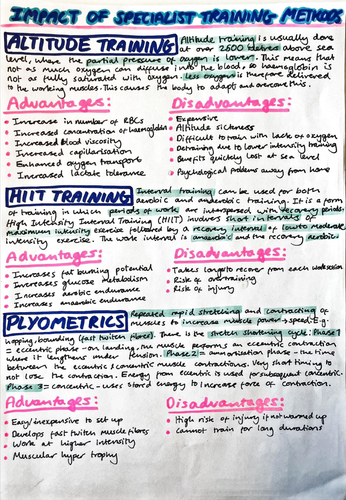 IMPACT OF SPECIALIST TRAINING METHODS
ALTITUDE TRAINING Altitude training is usually done
at over 2500 metres above sea
level, where the partial pressure of oxygen is lower. This means that
not as much oxygen can diffuse into the blood, so haemoglobin is
not as fully saturated with oxygen. Less oxygen is therefore delivered
to the working muscles. This causes the body to adapt and overcome this.
Advantages:
• Increase in number of RBCs
• Increased concentration of haemoglobin
• Increased blood viscosity
• Increased capillarisation
• Enhanced oxygen transport
• Increased lactate tolerance
Disadvantages:
• Expensive
• Altitude sickness
• Difficult to train with lack of oxygen
• Detraining due to lower intensity training
• Benefits quickly lost at sea level
• Psychological problems away from home
HIIT TRAINING Interval training can be used for both
aerobic and anaerobic training. It is a form
of training in which periods of work are interspersed with recovery periods.
High Intensity Interval Training (HIIT) involves short intervals of
maximum intensity exercise followed by a recovery interval of low to moderate
intensity exercise. The work interval is anaerobic and the recovery aerobic
Advantages:
• Increases fat burning potential
• Increases glucose metabolism
• Increases aerobic endurance
• Increases anaerobic endurance
Disadvantages:
• Takes long to recover from each work session
• Risk of overtraining
• Risk of injury
PLYOMETRICS Repeated rapid stretching and contracting of
muscles to increase muscle power + speed. E.g.
hopping, bounding (fast twitch fibres). There is the stretch shortening cycle: Phase 1
= eccentric phase - on landing, the muscle performs an eccentric contraction
where it lengthens under tension. Phase 2 = ammortisation phase - the time
between the eccentric + concentric muscle contractions. Very short timing to
not lose the contraction. Energy from eccentric is used for subsequent concentric.
Phase 3 = concentric - uses stored energy to increase force of contraction.
Advantages:
• Easy/inexpensive to set up
• Develops fast twitch muscle fibres
• Work at higher intensity
• Muscular hypertrophy
Disadvantages:
• High risk of injury if not warmed up
• Cannot train for long durations